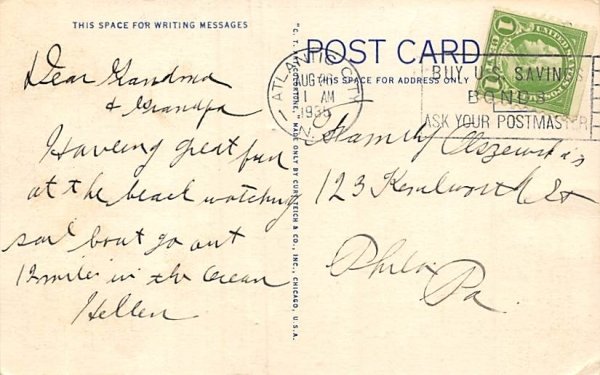 THIS SPACE FOR WRITING MESSAGES
Dear Grandma
& Grandpa
Haveing great fun
at the beach watching
sail boat go out
12 miles in the Ocean
Hellen
"C. T. ART-COLORTONE," MADE ONLY BY CURT TEICH & CO., INC., CHICAGO, U.S.A.
POST CARD
THIS SPACE FOR ADDRESS ONLY
ATLANTIC CITY
AUG
AM
N.J.
BUY U.S. SAVINGS
BONDS
ASK YOUR POSTMASTER
1
Family Olszewskis
123 Kenilworth St
Phila
Pa.